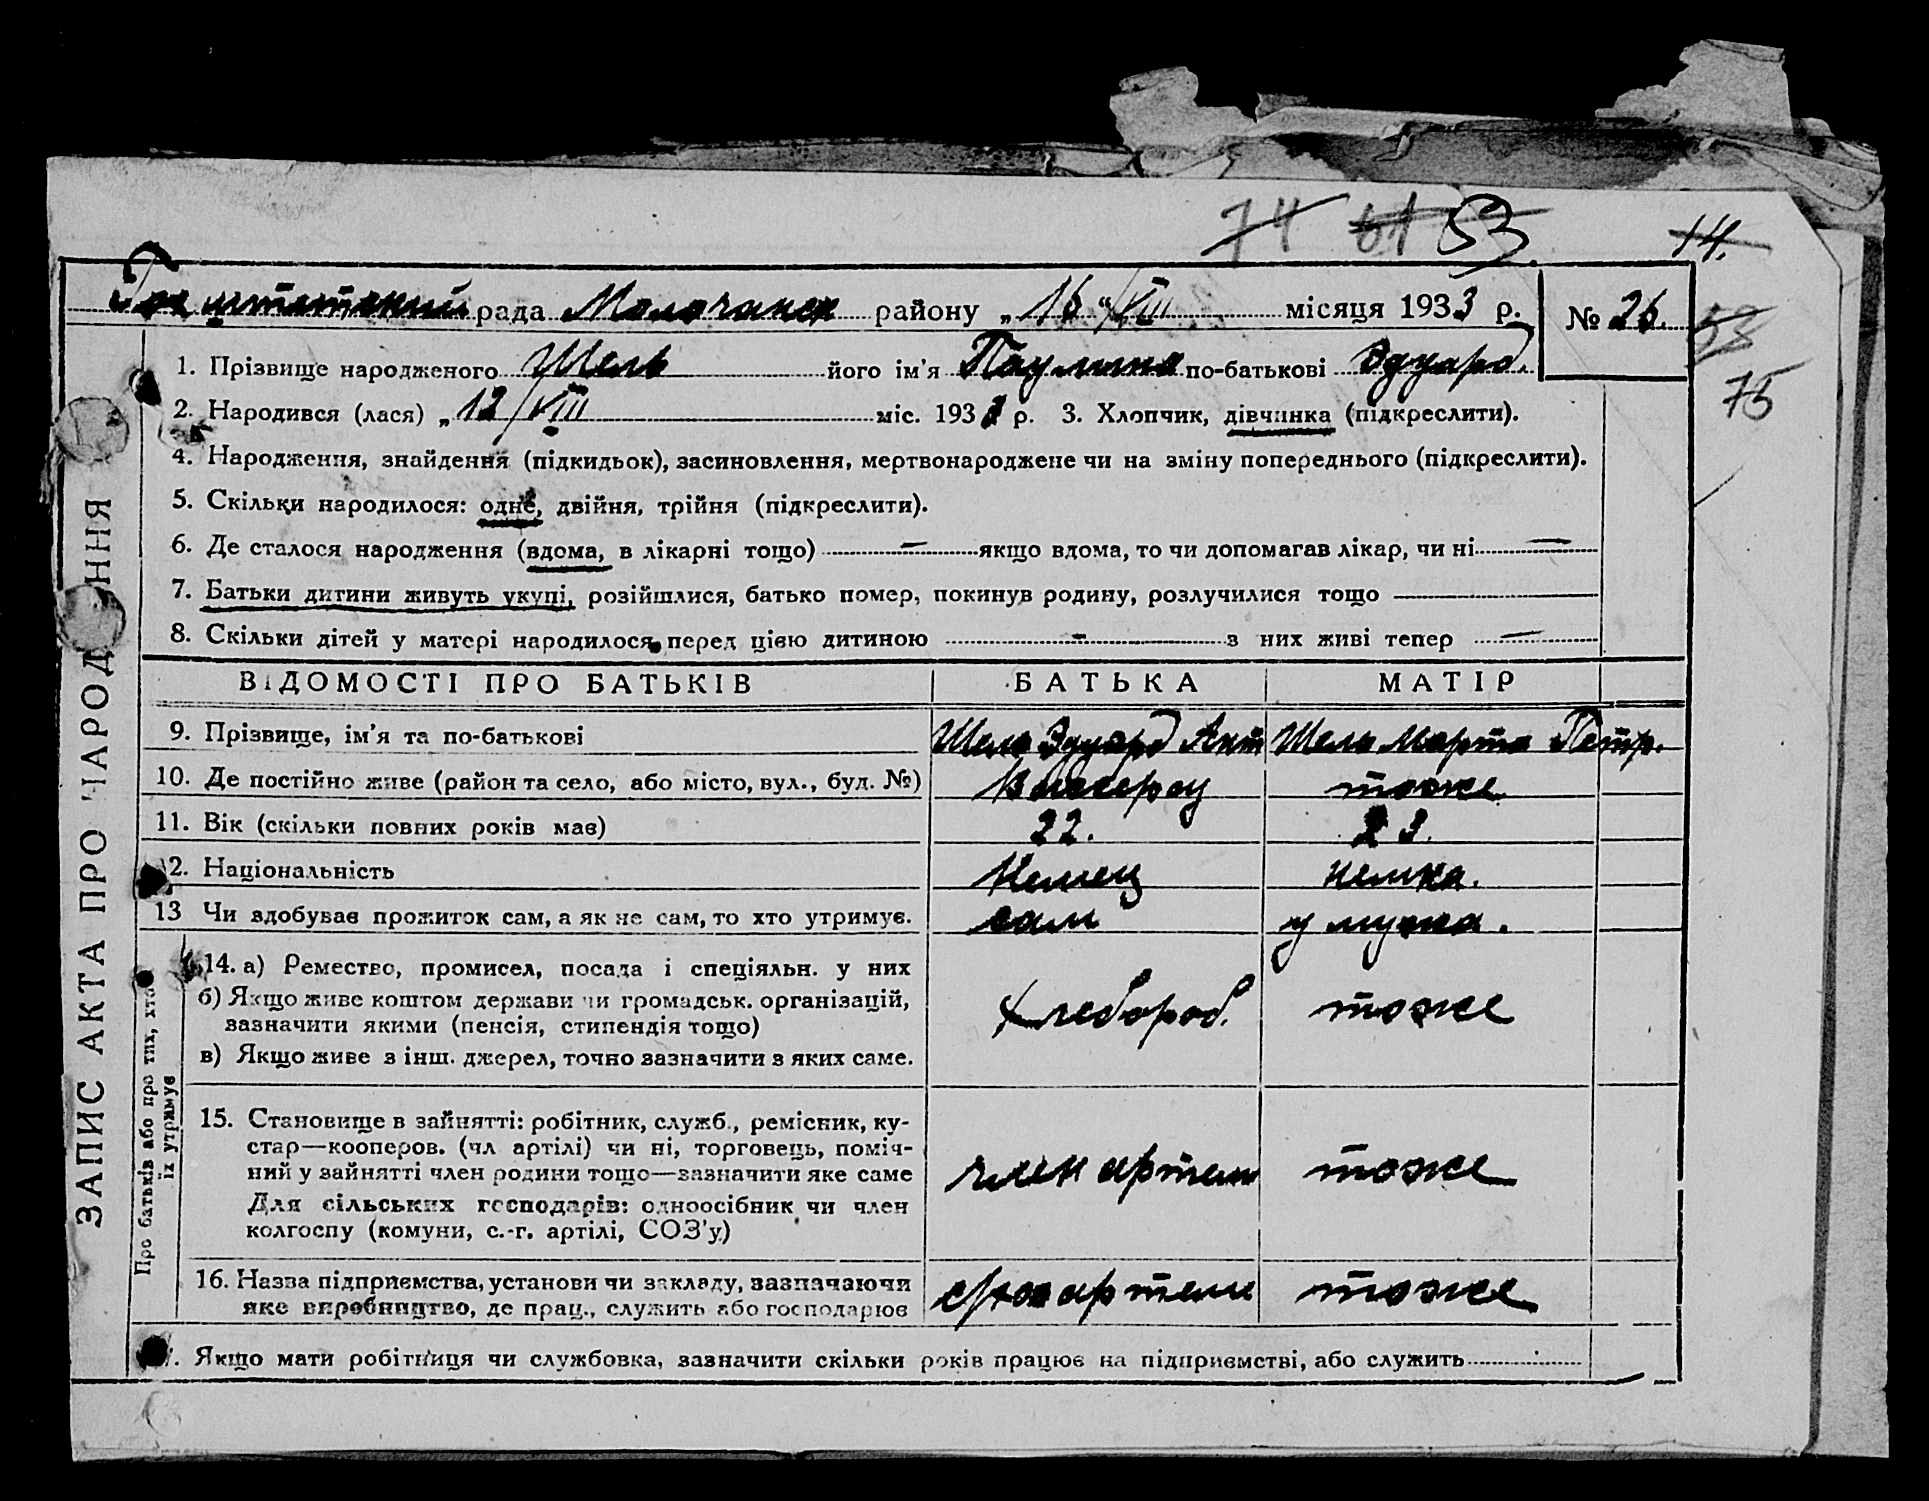 74 61 53 14.
рада Молочанск району „16 "/VIII місяця 1933 р. № 26.
53
75
1. Прізвище народженого Шель його ім'я Паулина по-батькові Эдуард.
2. Народився (лася) „12/VIII міс. 1933 р. 3. Хлопчик, дівчинка (підкреслити).
4. Народження, знайдення (підкидьок), засиновлення, мертвонароджене чи на зміну попереднього (підкреслити).
5. Скільки народилося: одне, двійня, трійня (підкреслити).
6. Де сталося народження (вдома, в лікарні тощо) — якщо вдома, то чи допомагав лікар, чи ні —
7. Батьки дитини живуть укупі, розійшлися, батько помер, покинув родину, розлучилися тощо
8. Скільки дітей у матері народилося перед цією дитиною - з них живі тепер —
ВІДОМОСТІ ПРО БАТЬКІВ БАТЬКА МАТІР
9. Прізвище, ім'я та по-батькові Шель Эдуард Ант Шель Марта Петр.
10. Де постійно живе (район та село, або місто, вул., буд. №) тоже
11. Вік (скільки повних років має) 22. 23.
12. Національність Немец немка.
13 Чи здобуває прожиток сам, а як не сам, то хто утримує. сам у мужа.
14. а) Ремество, промисел, посада і спеціяльн. у них
б) Якщо живе коштом держави чи громадськ. організацій,
зазначити якими (пенсія, стипендія тощо)
хлебороб. тоже
в) Якщо живе з інш. джерел, точно зазначити з яких саме.
15. Становище в зайнятті: робітник, служб., ремісник, ку-
стар—кооперов. (чл артілі) чи ні, торговець, поміч-
ний у зайнятті член родини тощо—зазначити яке саме
член артели тоже
Для сільських господарів: одноосібник чи член
колгоспу (комуни, с.-г. артілі, СОЗ'у)
16. Назва підприємства, установи чи закладу, зазначаючи
яке виробництво, де прац., служить або господарює
с/хоз артели тоже
. Якщо мати робітниця чи службовка, зазначити скільки років працює на підприємстві, або служить
ЗАПИС АКТА ПРО НАРОДЖЕННЯ
Про батьків або про тих, хто
їх утримує